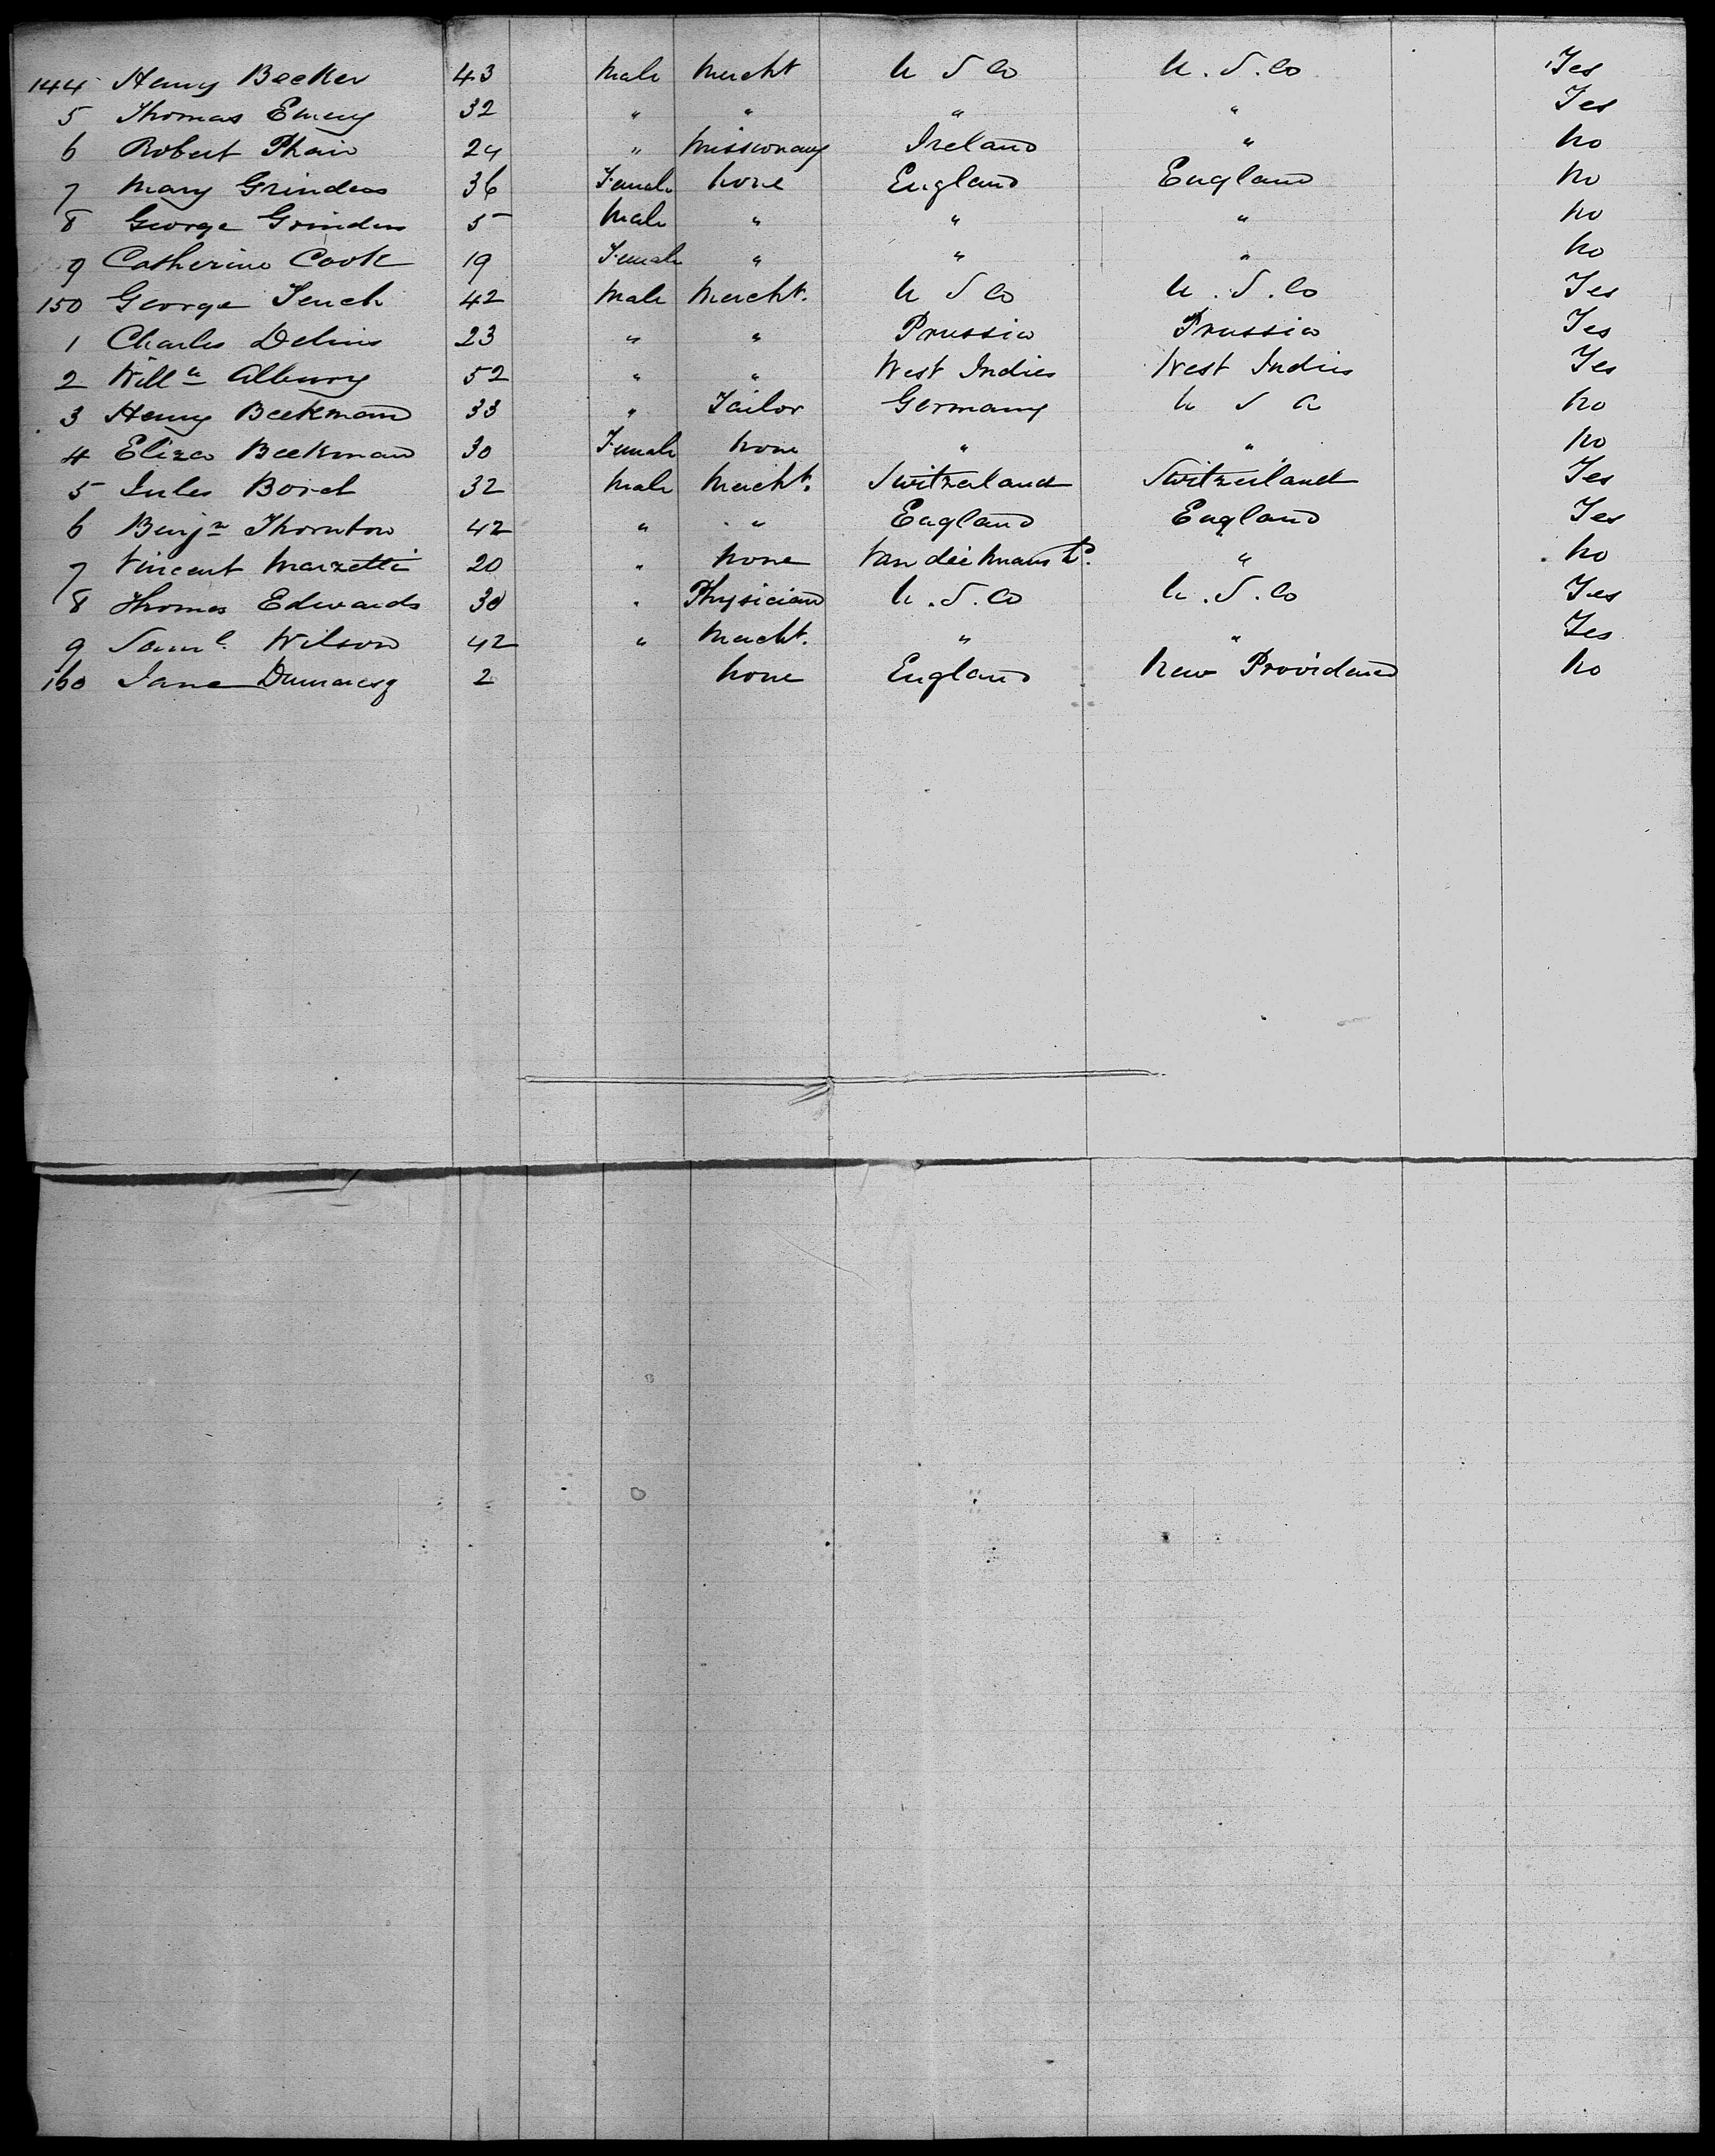 144 Henry Becker 43 Male Mercht U S Co U. S. Co Yes
5 Thomas Emery 32 " " " " Yes
6 Robert Phair 24 " Missionary Ireland " No
7 Mary Grinders 36 Female None England England No
8 George Grinders 5 Male " " " No
9 Catherine Cook 19 Female " " " No
150 George Tench 42 Male Mercht. U S Co U. S. Co Yes
1 Charles Delius 23 " " Prussia Prussia Yes
2 Willm Albury 52 " " West Indies West Indies Yes
3 Henry Beekman 33 " Tailor Germany U S A No
4 Eliza Beekman 30 Female None " " No
5 Jules Borel 32 Male Mercht. Switzerland Switzerland Yes
6 Benjn Thornton 42 " " England England Yes
7 Vincent Marzetti 20 " None Van diemans Ld. " No
8 Thomas Edwards 30 " Physician U. S. Co U. S. Co Yes
9 Saml. Wilson 42 " Mercht. " " Yes
160 Jane Dumaresq 2 None England New Providence No